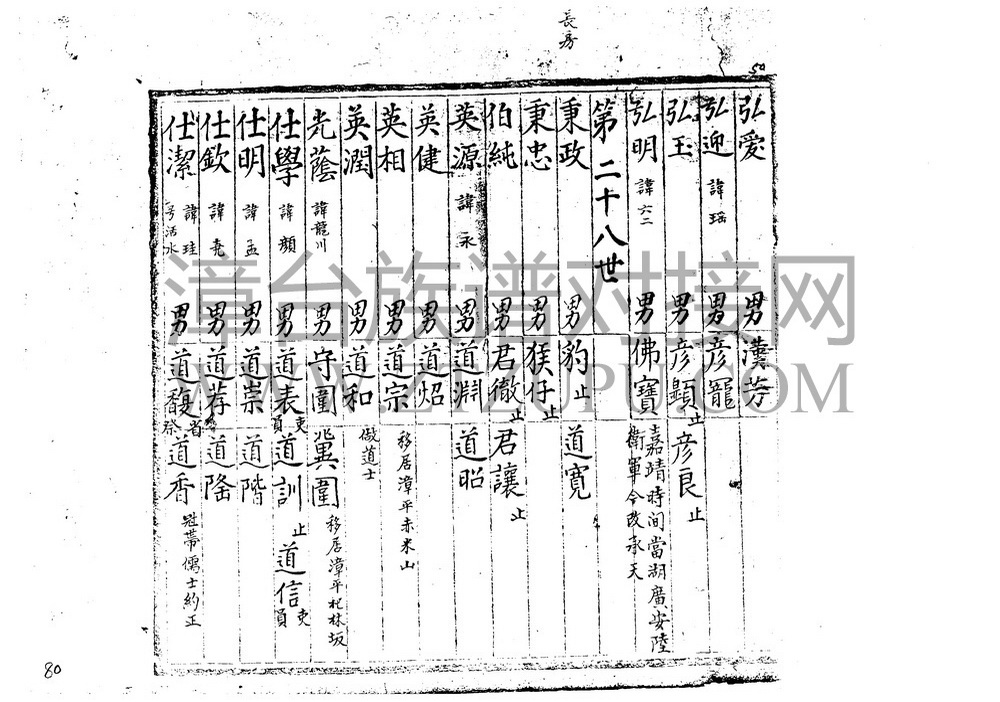 長房
50
弘愛 男 漢芳
弘迎 諱瑶 男 彦寵
弘玉 男 彦顯止 彦良止
弘明 諱六二 男 佛寶 嘉靖時间當湖廣安陸衛軍今改承天
第二十八世
秉政 男 豹止 道寬
秉忠 男 猴仔止
伯純 男 君徹止 君讓止
英源 諱永 男 道淵 道昭
英健 男 道炤
英相 男 道宗 移居漳平赤米山
英潤 男 道和 做道士
光蔭 諱龍川 男 守圍 冀圍 移居漳平杞林坂
仕學 諱顏 男 道表吏員 道訓止 道信吏員
仕明 諱孟 男 道崇 道階
仕欽 諱堯 男 道荐 道隆
仕潔 諱珪 号活水 男 道馥省祭 道香 冠帶儒士約正
80
漳台族谱对接网
WWW.ZTZUPU.COM